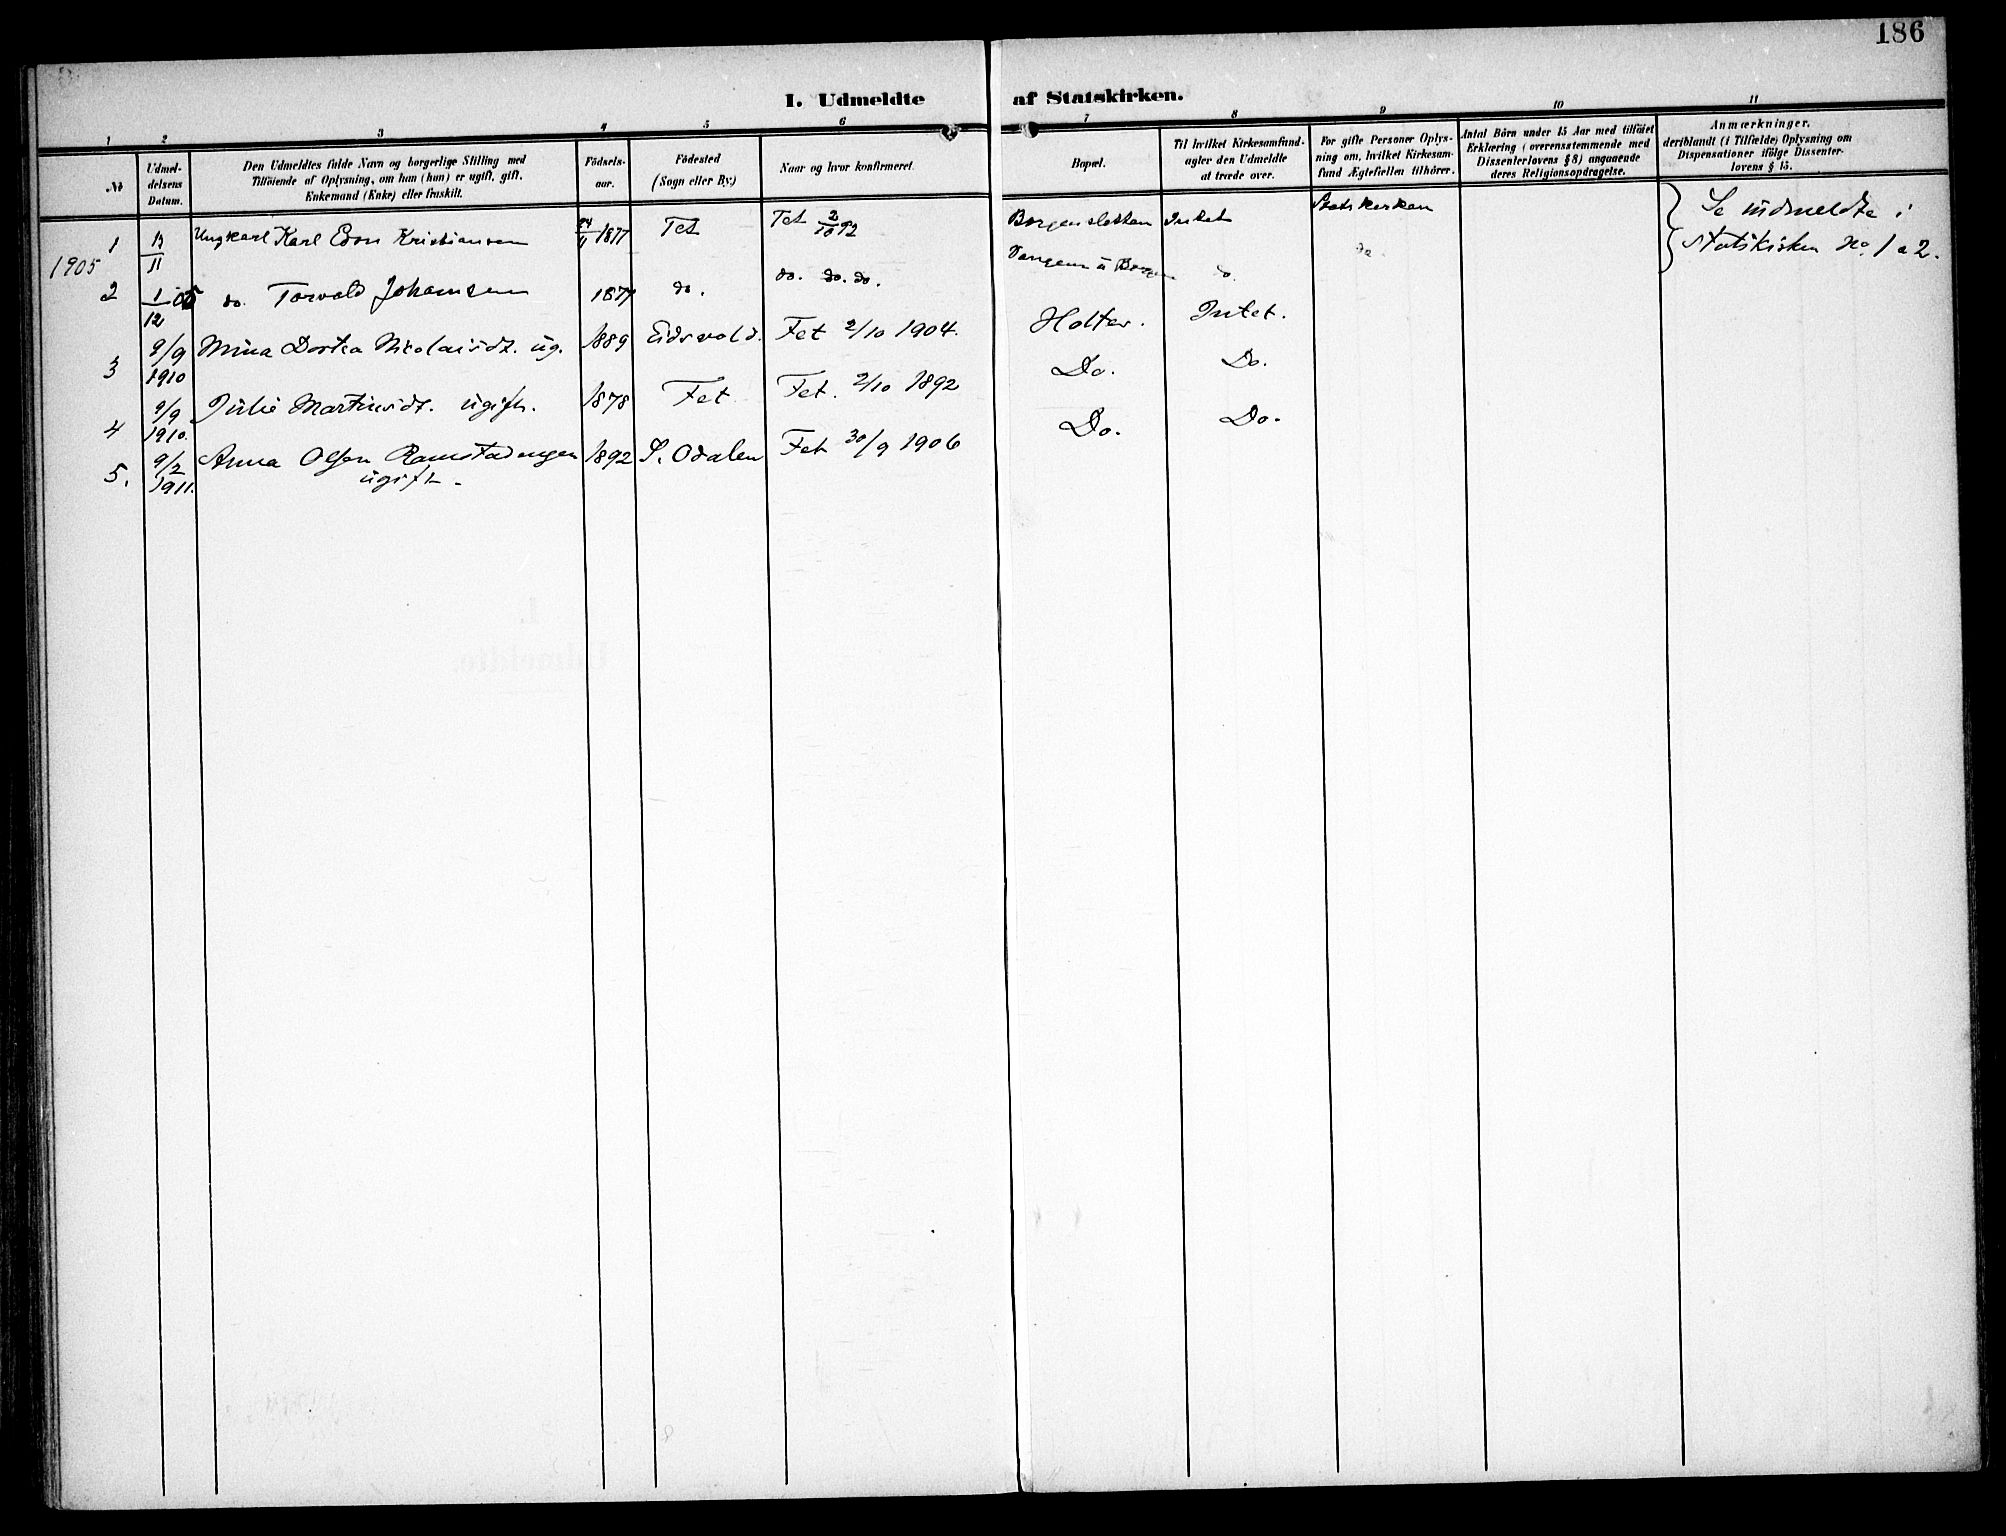 186
I. Udmeldte af Statskirken.
1 2 3 4 5 6 7 8 9 10 11
№
Udmel-
delsens
Datum.
Den Udmeldtes fulde Navn og borgerlige Stilling med
Tilföiende af Oplysning, om han (hun) er ugift, gift,
Enkemand (Enke) eller fraskilt.
Födsels-
aar.
Födested
(Sogn eller By.)
Naar og hvor konfirmeret.
Bopæl.
Til hvilket Kirkesamfund-
agter den Udmeldte
at træde over.
For gifte Personer Oplys-
ning om, hvilket Kirkesam-
fund Ægtefællen tilhörer.
Antal Börn under 15 Aar med tilföiet
Erklæring (overensstemmende med
Dissenterlovens § 8) angaaende
deres Religionsopdragelse.
Anmærkninger,
deriblandt (i Tilfælde) Oplysning om
Dispensationer ifölge Dissenter-
lovens § 15.
1905
1 13/11 Ungkarl Karl Edv. Kristiansen 24/11 1877 Fet Fet 2/10 92 Borgensletten Intet Statskirken
2 1/12 05 do. Torvald Johansen 1877 do. do. do. do. Vangen u Borgen do. do.
Se indmeldte i
Statskirken No. 1 a 2.
3 9/9 1910 Mina Dortea Nicolaisdt. ug. 1889 Eidsvold. Fet 2/10 1904. Holter. Intet.
4 9/9 1910. Julie Martinsdt. ugift. 1878 Fet Fet. 2/10 1892 Do. Do.
5. 9/2 1911. Anna Olsen Ramstadengen 1892 S. Odalen Fet 30/9 1906 Do. Do.
ugift.